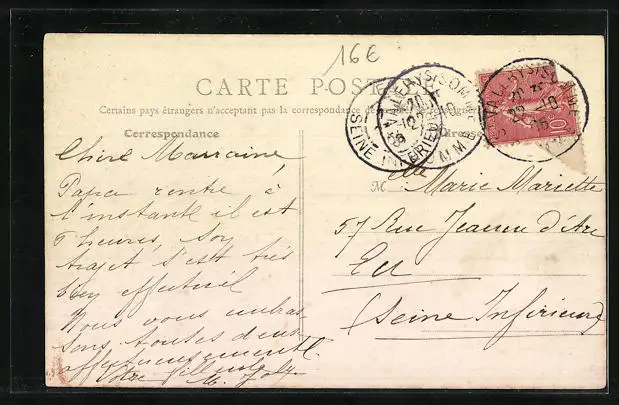 16€
CARTE POSTALE
Certains pays étrangers n'acceptant pas la correspondance
Correspondance
Chère Marraine
Papa rentre à
l'instant il est
7 heures, Son
trajet s'est très
bien effectué
Nous vous embras
sons toutes deux
affectueusement.
Votre filleule
M. Joly
M elle Marie Mariette
57 Rue Jeanne d'Arc
Eu
(Seine Inférieure)
ST VALERY S SOMME
SEINE INFÉRIEURE
ST VALERY S SOMME
10c